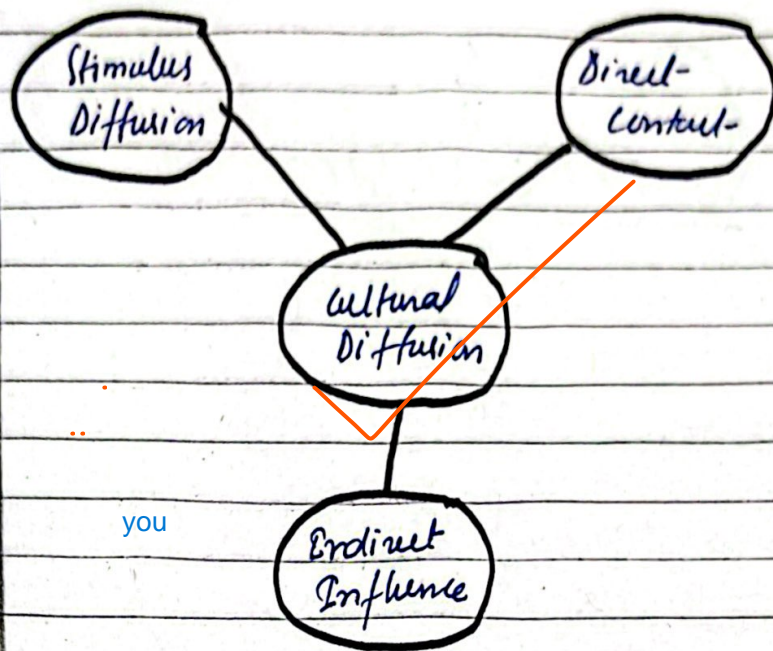 Stimulus
Diffusion
Direct
Contact
Cultural
Diffusion
you
Indirect
Influence